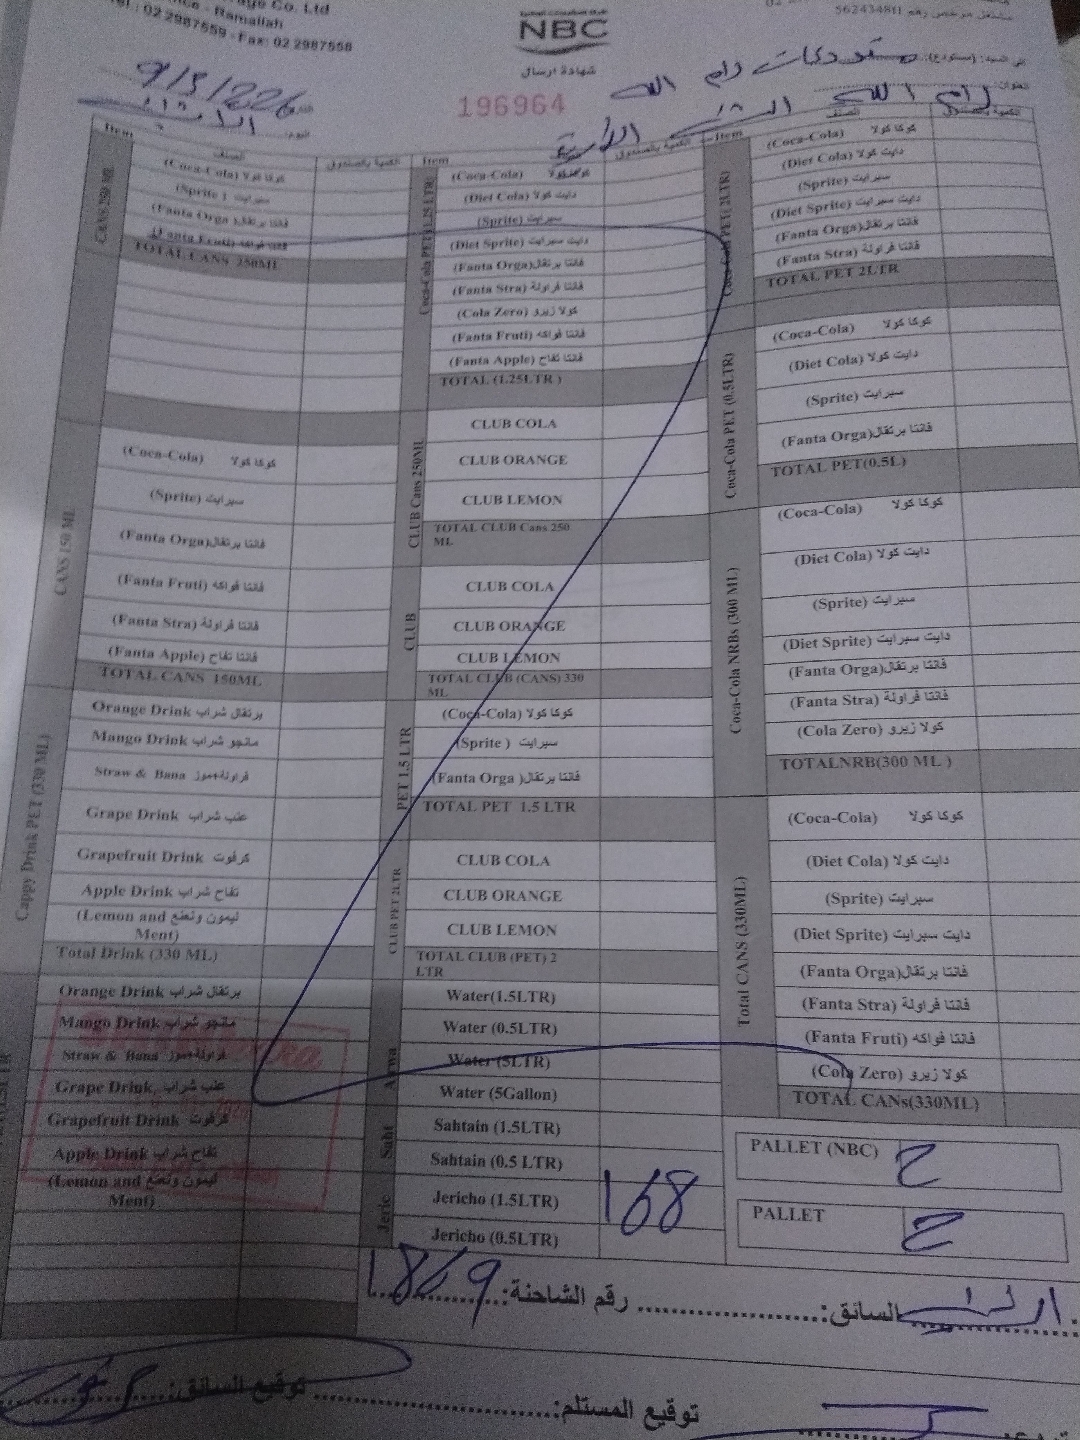 Co. Ltd
Ramallah
02 2987559 - Fax: 02 2987558
NBC
شهادة ارسال
196964
562434801 مشتغل مرخص رقم
إلى السيد: (مستودع) مستودعات رام الله
العنوان:
9/5/2026
اليوم:
Item الصنف الكمية بالصندوق
CANS 250 ML
(Coca-Cola) كوكا كولا
(Sprite ) سبرايت
(Fanta Orga )فانتا برتقال
(Fanta Fruti) فانتا فواكه
TOTAL CANS 250ML
CANS 150 ML
(Coca-Cola) كوكا كولا
(Sprite) سبرايت
(Fanta Orga)فانتا برتقال
(Fanta Fruti) فانتا فواكه
(Fanta Stra) فانتا فراولة
(Fanta Apple) فانتا تفاح
TOTAL CANS 150ML
Cappy Drink PET (330 ML)
Orange Drink برتقال شراب
Mango Drink مانجو شراب
Straw & Bana فراولة+موز
Grape Drink عنب شراب
Grapefruit Drink كرفوت
Apple Drink تفاح شراب
(Lemon and ليمون ونعنع
Ment)
Total Drink (330 ML)
Orange Drink برتقال شراب
Mango Drink مانجو شراب
Straw & Bana فراولة+موز
Grape Drink عنب شراب
Grapefruit Drink كرفوت
Apple Drink تفاح شراب
(Lemon and ليمون ونعنع
Ment)
Item الكمية بالصندوق
Coca-Cola PET(1.25 LTR)
(Coca-Cola) كوكا كولا
(Diet Cola) دايت كولا
(Sprite) سبرايت
(Diet Sprite) دايت سبرايت
(Fanta Orga)فانتا برتقال
(Fanta Stra) فانتا فراولة
(Cola Zero) كولا زيرو
(Fanta Fruti) فانتا فواكه
(Fanta Apple) فانتا تفاح
TOTAL (1.25LTR )
CLUB Cans 250ML
CLUB COLA
CLUB ORANGE
CLUB LEMON
TOTAL CLUB Cans 250
ML
CLUB
CLUB COLA
CLUB ORANGE
CLUB LEMON
TOTAL CLUB (CANS) 330
ML
PET 1.5 LTR
(Coca-Cola) كوكا كولا
(Sprite ) سبرايت
(Fanta Orga )فانتا برتقال
TOTAL PET 1.5 LTR
CLUB PET 2LTR
CLUB COLA
CLUB ORANGE
CLUB LEMON
TOTAL CLUB (PET) 2
LTR
Water(1.5LTR)
Water (0.5LTR)
Water (5LTR)
Water (5Gallon)
Saht
Sahtain (1.5LTR)
Sahtain (0.5 LTR)
Jeric
Jericho (1.5LTR) 168
Jericho (0.5LTR)
Item الصنف الكمية بالصندوق
PET( 2LTR)
(Coca-Cola) كوكا كولا
(Diet Cola) دايت كولا
(Sprite) سبرايت
(Diet Sprite) دايت سبرايت
(Fanta Orga)فانتا برتقال
(Fanta Stra) فانتا فراولة
TOTAL PET 2LTR
Coca-Cola PET (0.5LTR)
(Coca-Cola) كوكا كولا
(Diet Cola) دايت كولا
(Sprite) سبرايت
(Fanta Orga)فانتا برتقال
TOTAL PET(0.5L)
Coca-Cola NRBs (300 ML)
(Coca-Cola) كوكا كولا
(Diet Cola) دايت كولا
(Sprite) سبرايت
(Diet Sprite) دايت سبرايت
(Fanta Orga)فانتا برتقال
(Fanta Stra) فانتا فراولة
(Cola Zero) كولا زيرو
TOTALNRB(300 ML )
Total CANS (330ML)
(Coca-Cola) كوكا كولا
(Diet Cola) دايت كولا
(Sprite) سبرايت
(Diet Sprite) دايت سبرايت
(Fanta Orga)فانتا برتقال
(Fanta Stra) فانتا فراولة
(Fanta Fruti) فانتا فواكه
(Cola Zero) كولا زيرو
TOTAL CANs(330ML)
PALLET (NBC)
PALLET
السائق: رقم الشاحنة: 1869
توقيع المستلم: توقيع السائق: